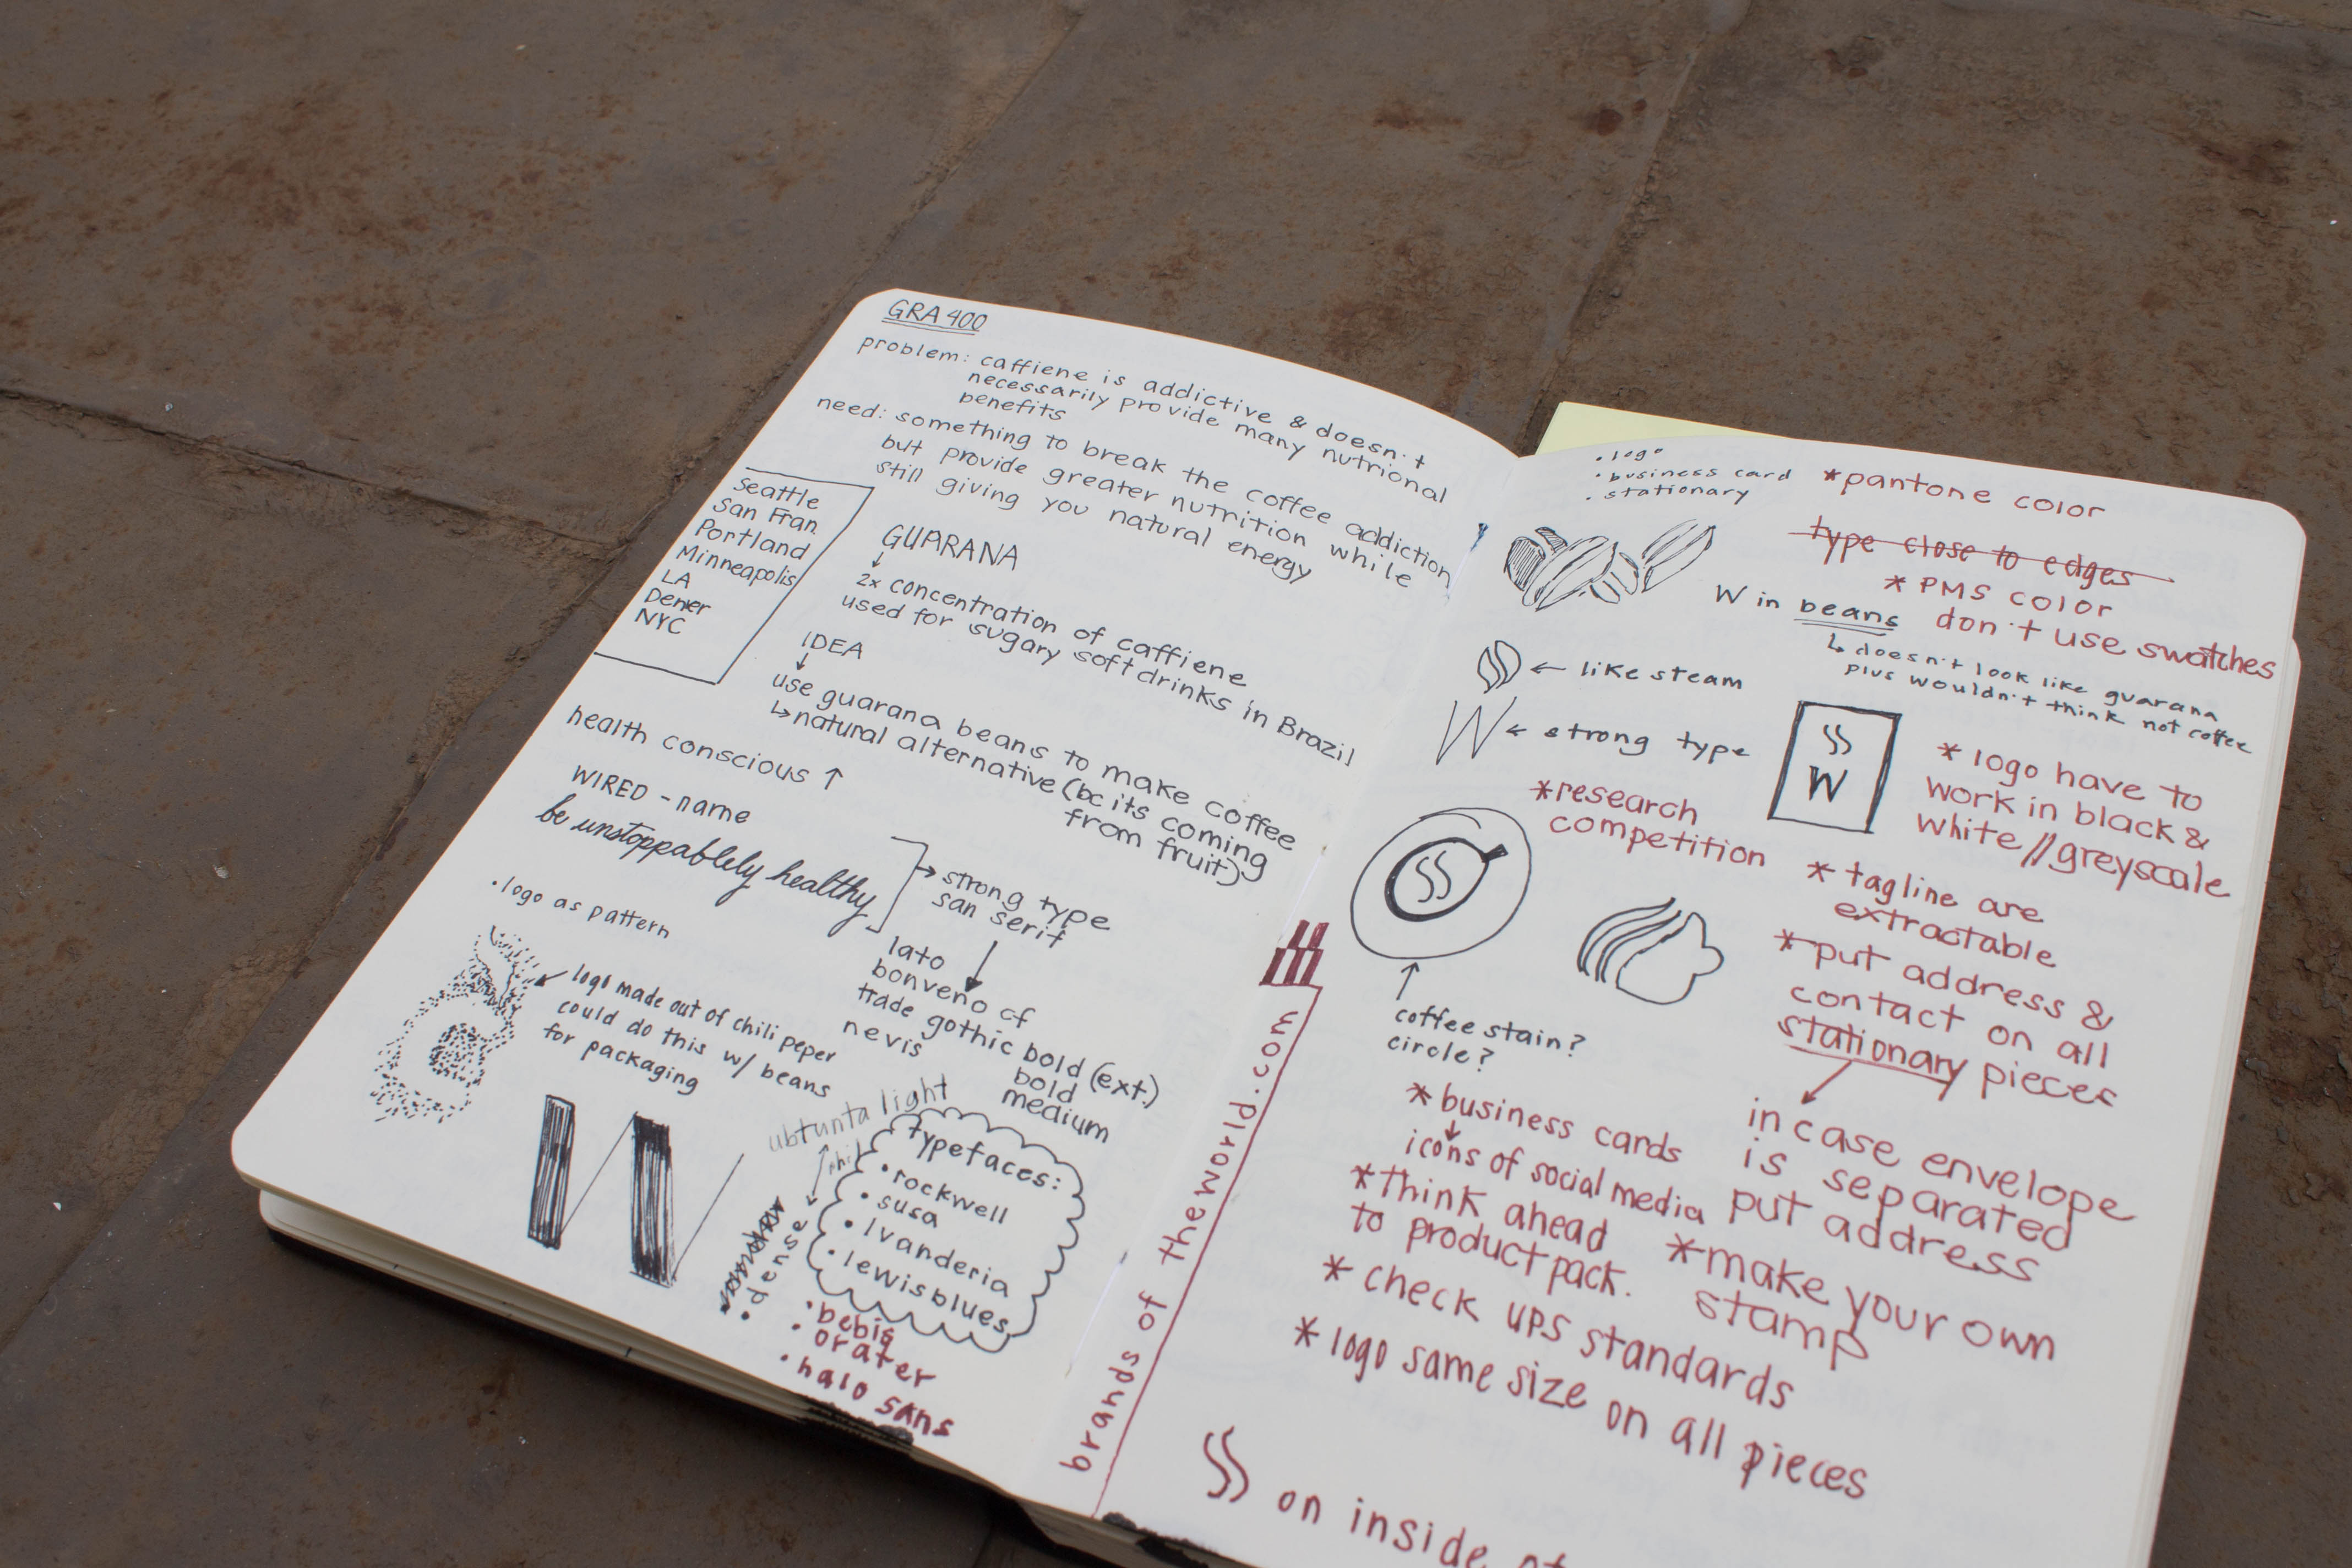 GRA 400
problem: caffiene is addictive & doesn't
necessarily provide many nutrional
benefits
need: something to break the coffee addiction
but provide greater nutrition while
still giving you natural energy
Seattle
San Fran
Portland
Minneapolis
LA
Denver
NYC
GUARANA
↓
2x concentration of caffiene
used for sugary soft drinks in Brazil
IDEA
↓
use guarana beans to make coffee
↳ natural alternative (bc its coming
from fruit)
health conscious ↑
WIRED - name
be unstoppablely healthy
→ strong type
san serif
lato
bonveno cf
trade gothic bold (ext.)
bold
medium
nevis
• logo as pattern
logo made out of chili peper
could do this w/ beans
for packaging
W
ubtunta light
typefaces:
• rockwell
• susa
• lvanderia
• lewisblues
• dense
• bebis
• orater
• halo sans
brands of theworld.com
• logo
• business card
• stationary
*pantone color
type close to edges
* PMS color
don't use swatches
W in beans
↳ doesn't look like guarana
plus wouldn't think not coffee
← like steam
W ← strong type
W
*research
competition
* logo have to
work in black &
white // greyscale
* tagline are
extractable
* put address &
contact on all
stationary pieces
in case envelope
is separated
put address
coffee stain?
circle?
* business cards
↓
icons of social media
*think ahead
to product pack.
* make your own
stamp
* check UPS standards
* logo same size on all pieces
on inside